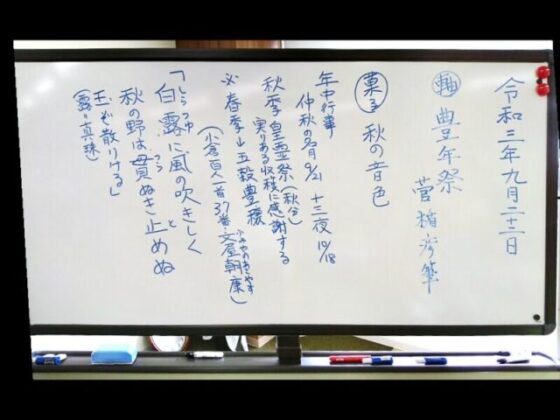 令和三年九月二十二日
軸 豊年祭
菅楯彦筆
菓子 秋の音色
年中行事
仲秋の名月9/21 十三夜10/18
秋季皇霊祭(秋分)
実りある収穫に感謝する
※春季は五穀豊穣
(小倉百人一首37番・文屋朝康)
ふみやのあさやす
「白露に風の吹きしく
しらつゆ
秋の野は貫ぬき止めぬ
つら と
玉ぞ散りける」
(露=真珠)